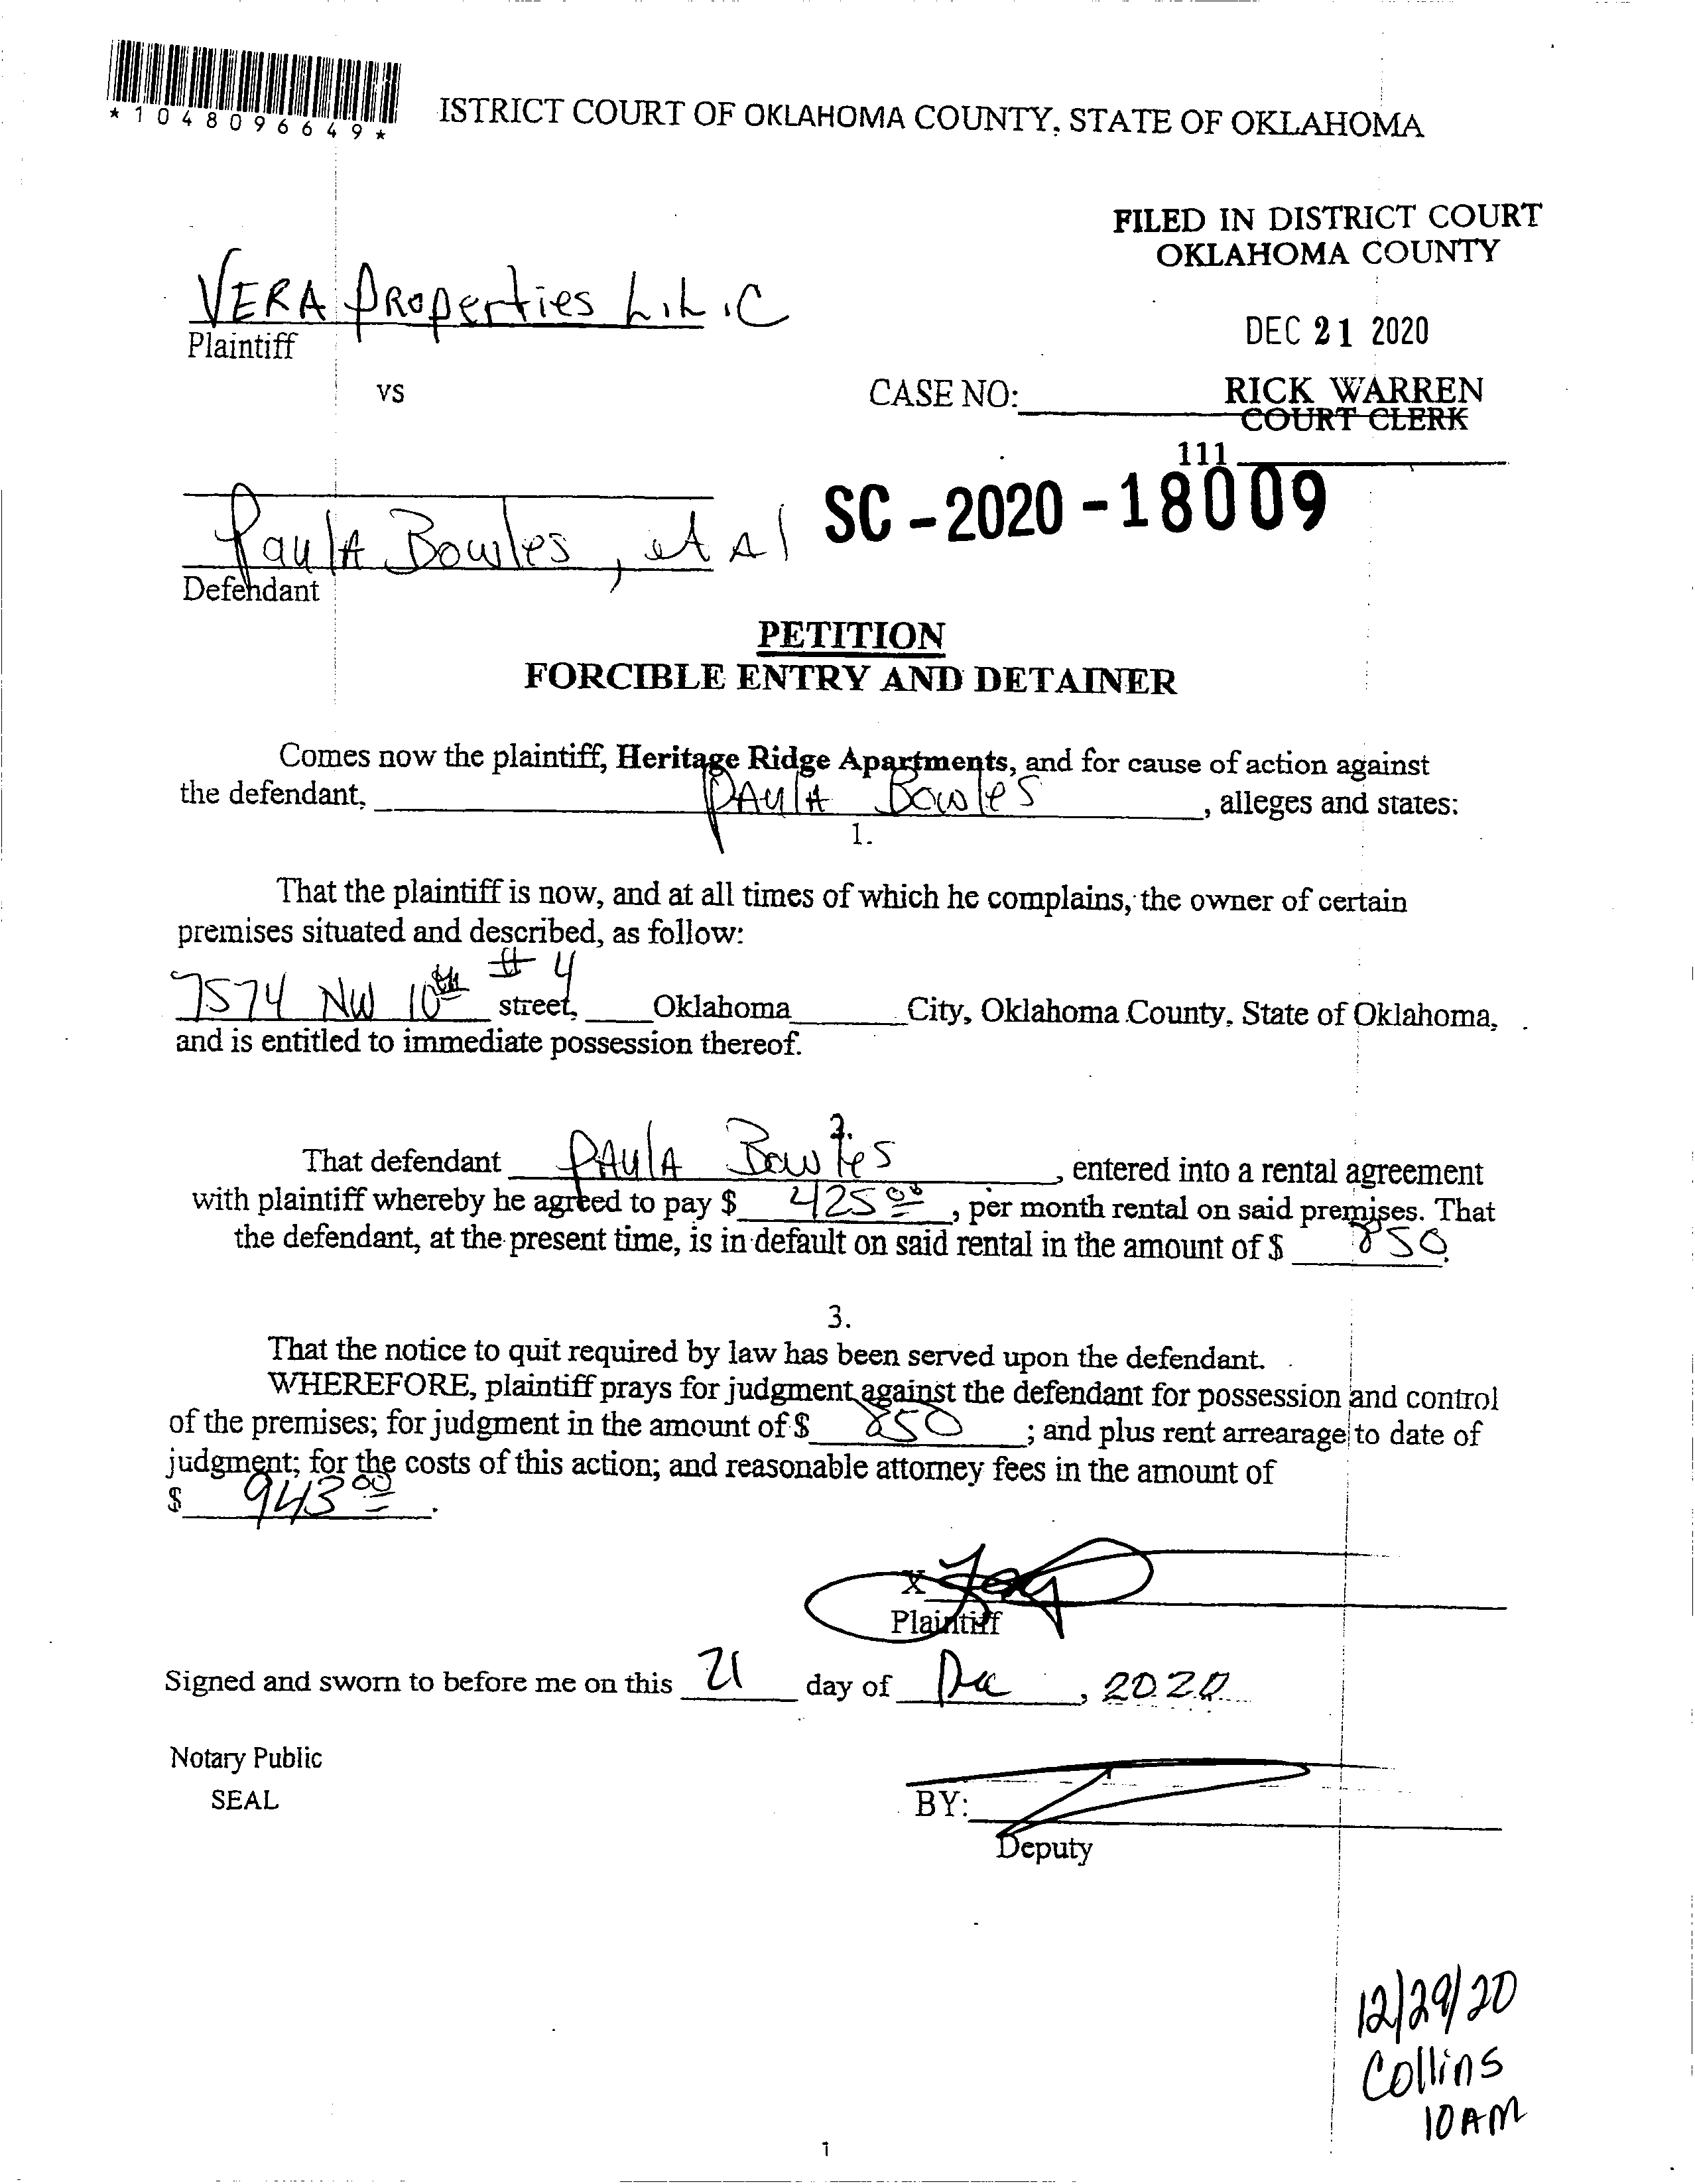 *1048096649*
ISTRICT COURT OF OKLAHOMA COUNTY, STATE OF OKLAHOMA
FILED IN DISTRICT COURT
OKLAHOMA COUNTY
VERA PROperties L.L.C
Plaintiff
DEC 21 2020
vs
CASE NO:
RICK WARREN
COURT CLERK
111
SC-2020-18009
PaulA Bowles, et Al
Defendant
PETITION
FORCIBLE ENTRY AND DETAINER
Comes now the plaintiff, Heritage Ridge Apartments, and for cause of action against
the defendant, PAulA Bowles, alleges and states:
1.
That the plaintiff is now, and at all times of which he complains, the owner of certain
premises situated and described, as follow:
7574 NW 10th #4 street, Oklahoma City, Oklahoma County, State of Oklahoma,
and is entitled to immediate possession thereof.
2.
That defendant PAulA Bowles, entered into a rental agreement
with plaintiff whereby he agreed to pay $ 425 00, per month rental on said premises. That
the defendant, at the present time, is in default on said rental in the amount of $ 850.
3.
That the notice to quit required by law has been served upon the defendant.
WHEREFORE, plaintiff prays for judgment against the defendant for possession and control
of the premises; for judgment in the amount of $ 850; and plus rent arrearage to date of
judgment; for the costs of this action; and reasonable attorney fees in the amount of
$ 943 00.
X
Plaintiff
Signed and sworn to before me on this 21 day of Dec, 2020
Notary Public
SEAL
BY:
Deputy
12/29/20
Collins
10 AM
1